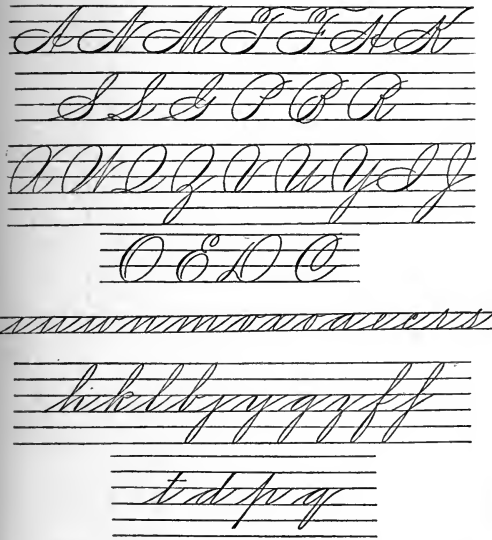 A N M T F H K
S L G P B R
X W Q Z V U Y I J
O E D C
i u w n m v x o a e c r s
h k l b j y g z f f
t d p q